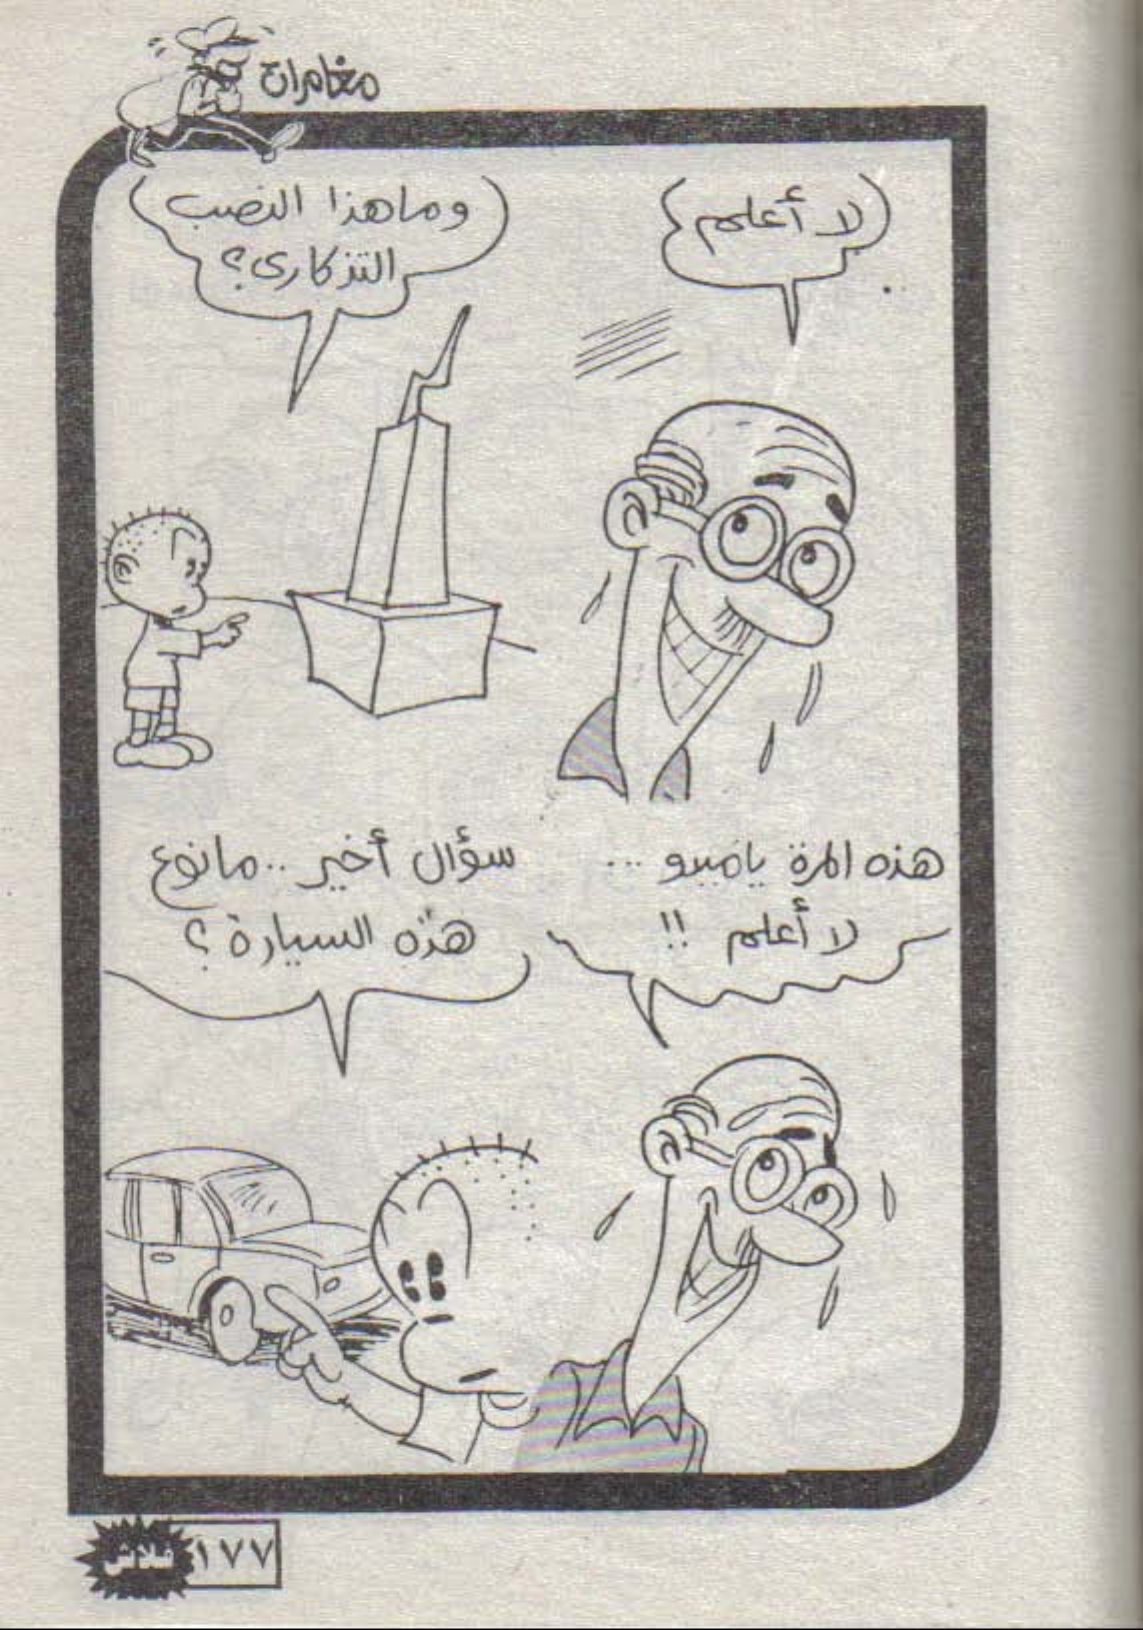 مغامرات
لا أعلم
وما هذا النصب
التذكارى؟
هذه المرة يا ميدو ...
لا أعلم !!
سؤال أخير .. ما نوع
هذه السيارة ؟
فلاش
١٧٧